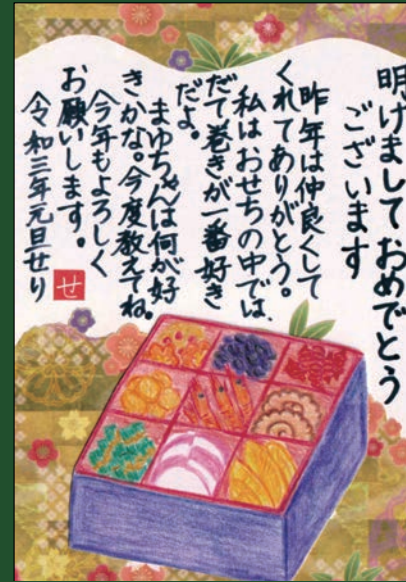 明けましておめでとう
ございます
昨年は仲良くして
くれてありがとう。
私はおせちの中では、
だて巻きが一番好き
だよ。
まゆちゃんは何が好
きかな。今度教えてね。
今年もよろしく
お願いします。
令和三年元旦せり
せ